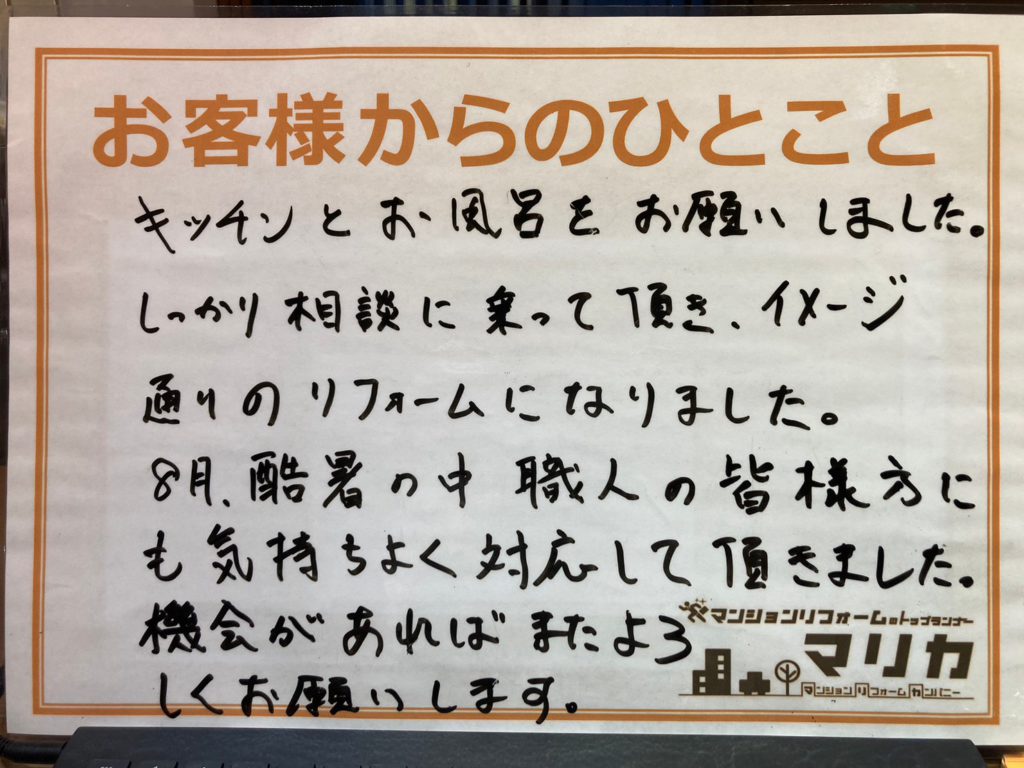 お客様からのひとこと
キッチンとお風呂をお願いしました。
しっかり相談に乗って頂き、イメージ
通りのリフォームになりました。
8月、酷暑の中職人の皆様方に
も気持ちよく対応して頂きました。
機会があればまたよろ
しくお願いします。
マンションリフォームのトップランナー
マリカ
マンションリフォームカンパニー